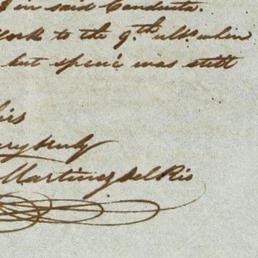 in said Conducta.
York to the 9th ulto when
but specie was still
his
very truly
Martinez del Rio